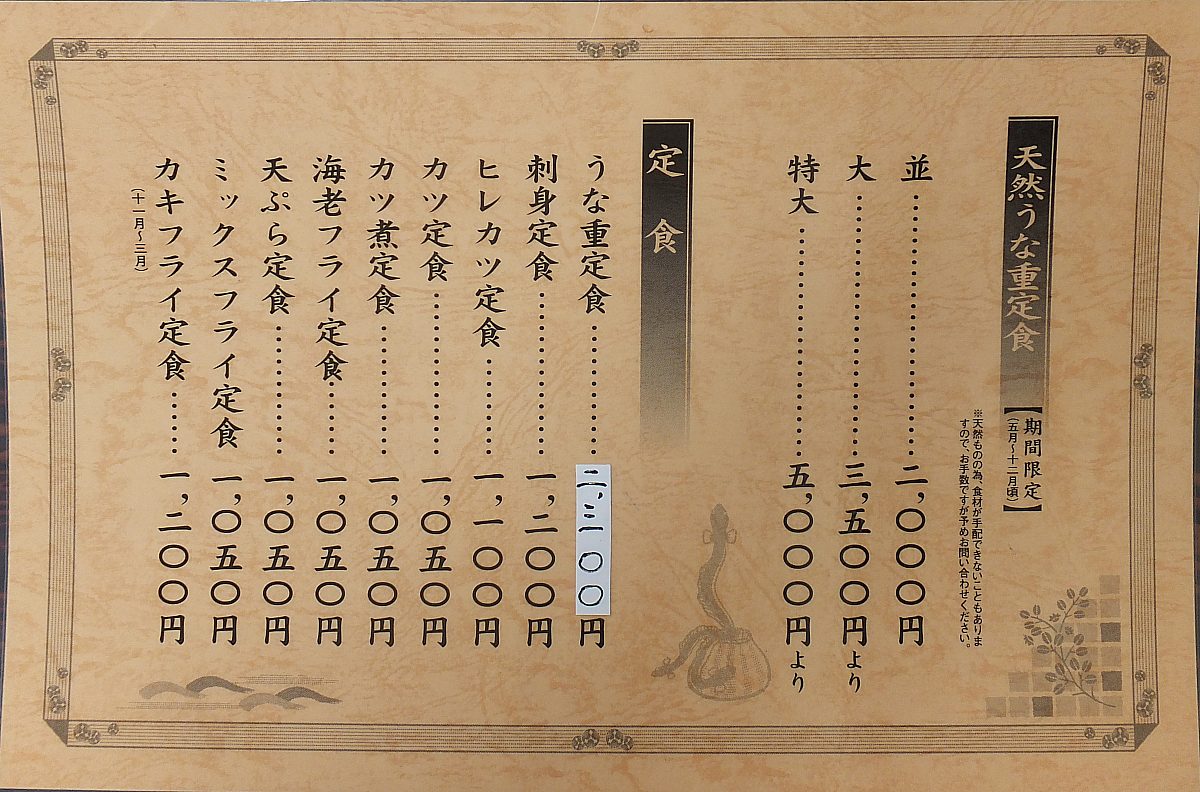 天然うな重定食
【期間限定】
（五月〜十二月頃）
※天然ものの為、食材が手配できないこともありま
すので、お手数ですが予めお問い合わせください。
並…………………二,〇〇〇円
大…………………三,五〇〇円より
特大………………五,〇〇〇円より
定食
うな重定食…………二,三〇〇円
刺身定食…………一,二〇〇円
ヒレカツ定食………一,一〇〇円
カツ定食…………一,〇五〇円
カツ煮定食…………一,〇五〇円
海老フライ定食……一,〇五〇円
天ぷら定食…………一,〇五〇円
ミックスフライ定食 一,〇五〇円
カキフライ定食……一,二〇〇円
（十一月〜三月）